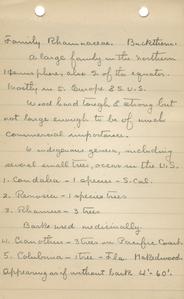 Family Rhamnaceae. Buckthorn.
A large family in the northern
Hemisphere, also S. of the equator.
Mostly in S. Europe & S. U.S.
Wood hard tough & strong but
not large enough to be of much
commercial importance.
6 indigenous genera, including
several small trees, occur in the U.S.
1. Condalia - 1 species - S. Cal.
2. - 1 species trees
3. Rhamnus - 3 trees
Barks used medicinally.
4. Ceanothus - 3 trees in Pacific Coast.
5. Colubrina - 1 tree - Fla. Nakedwood.
Appearing as if without bark 4'- 60'.